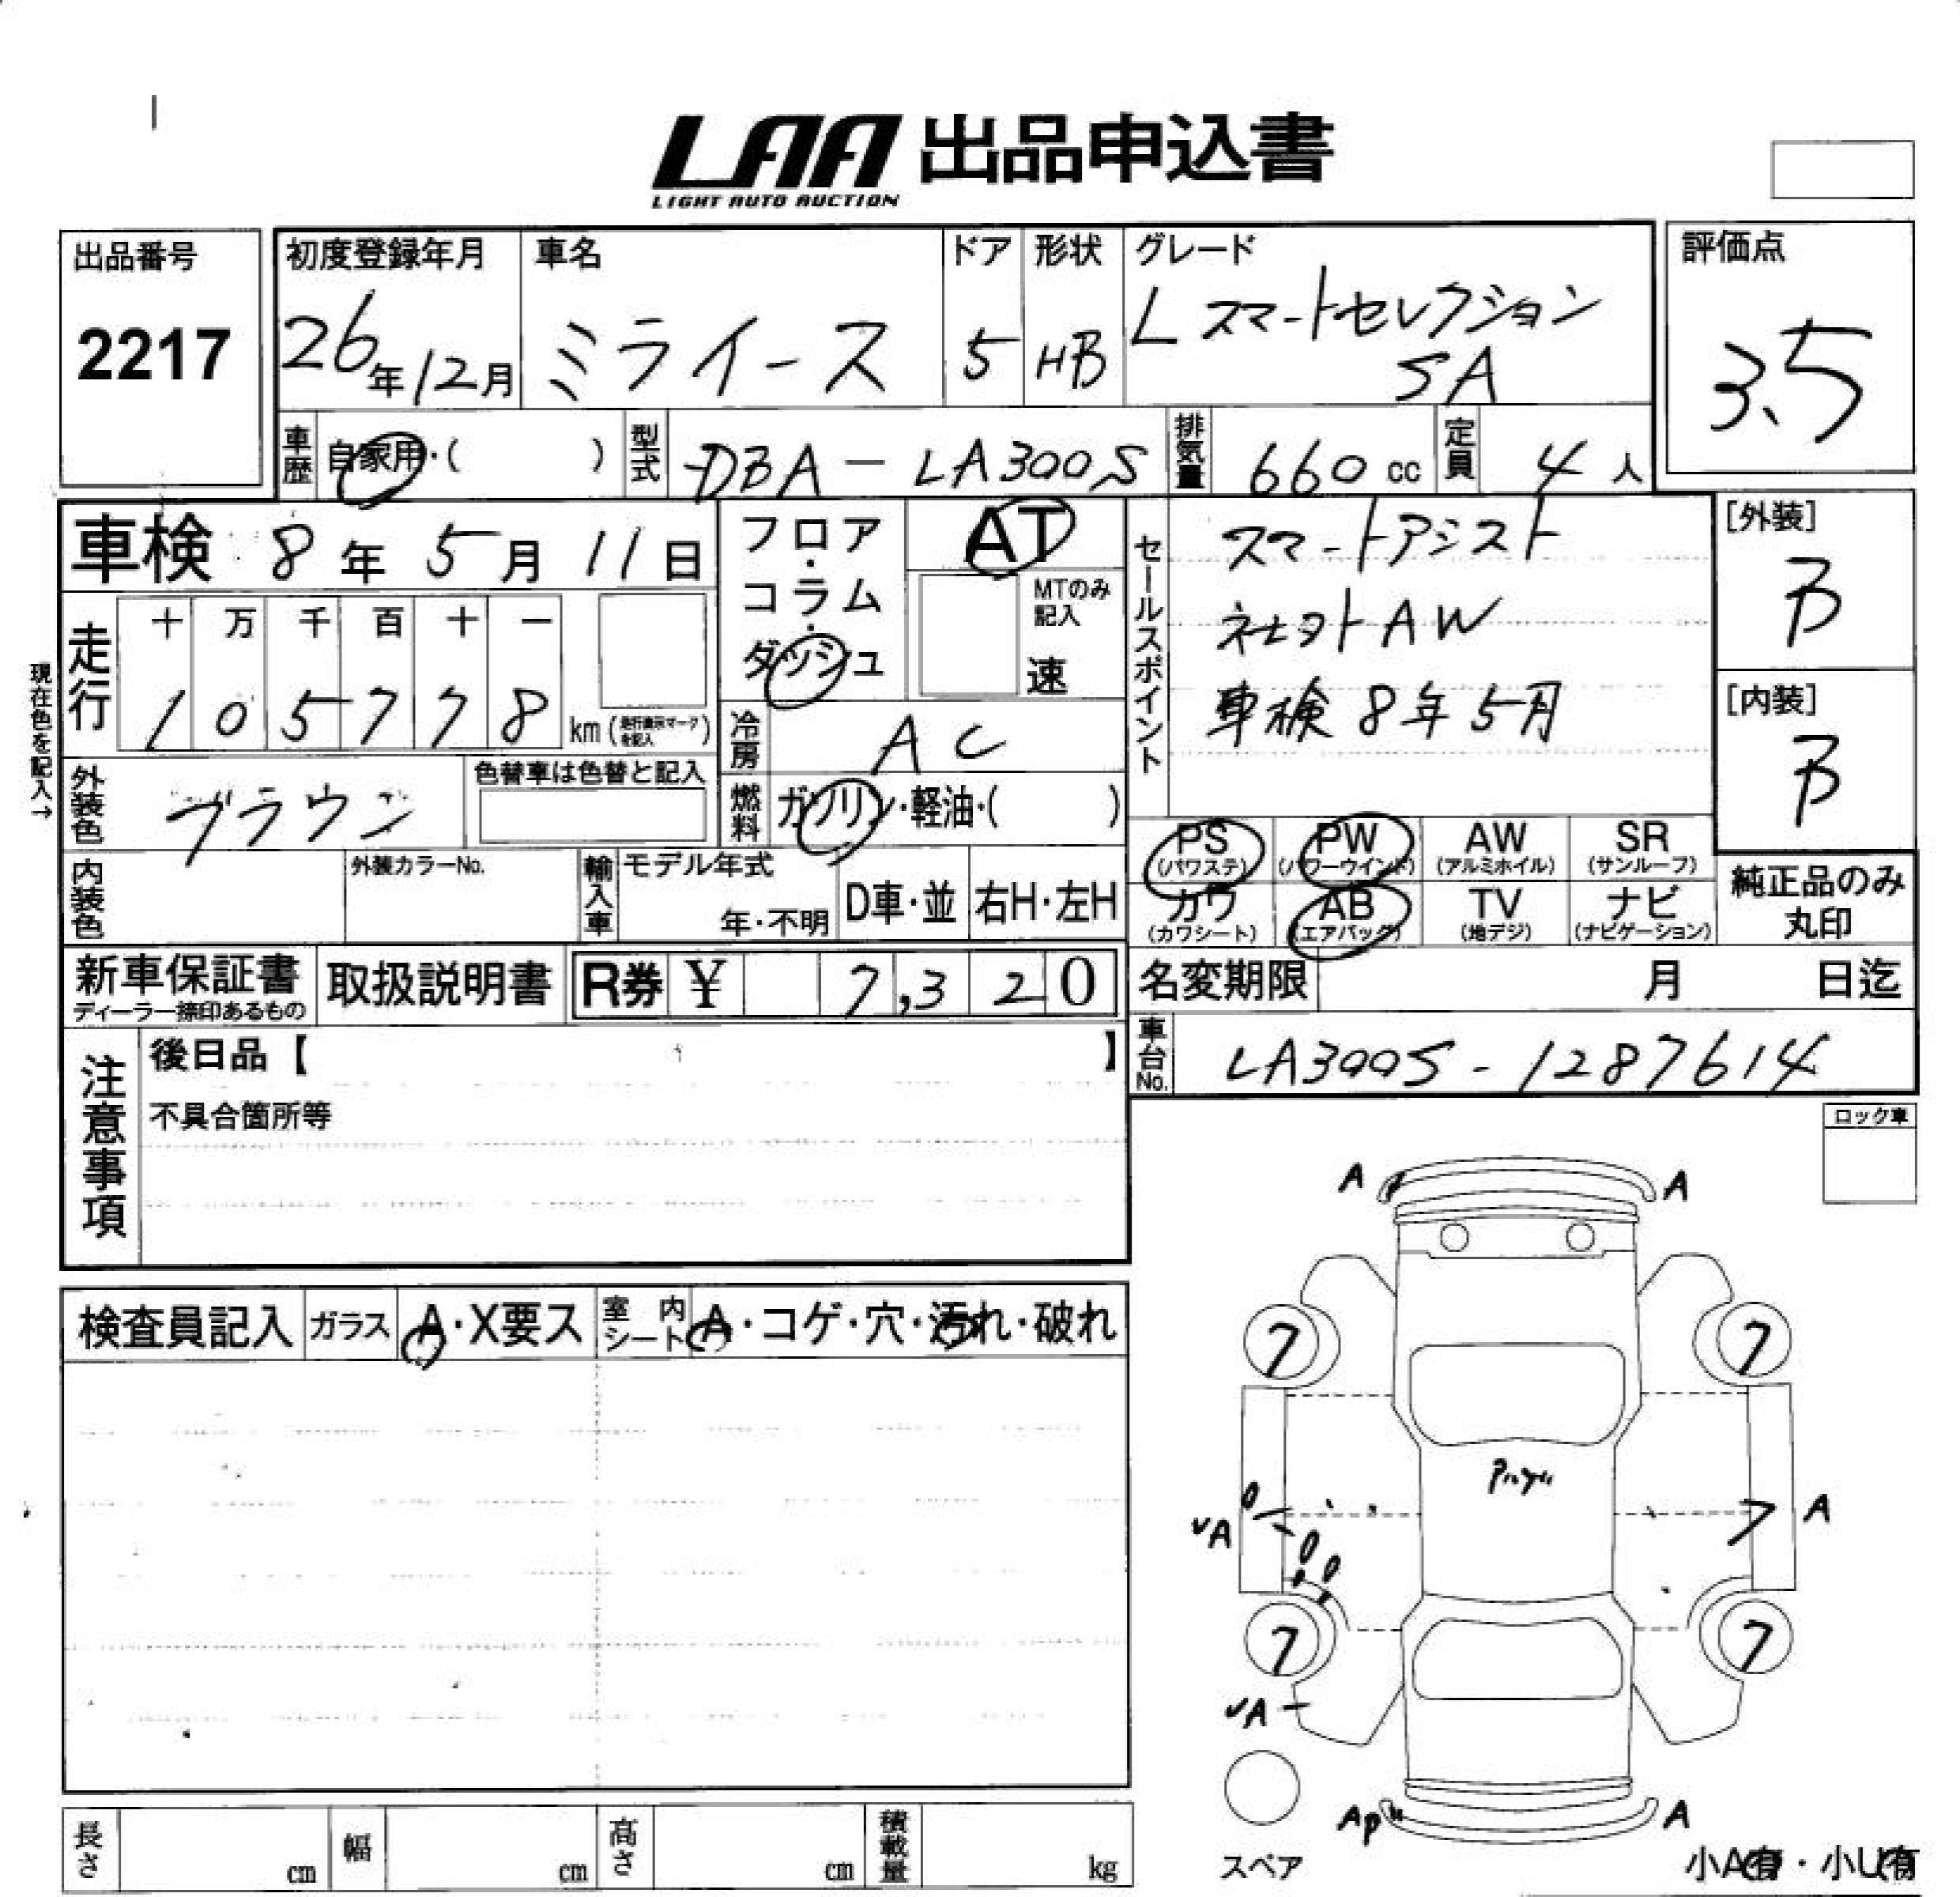 LAA 出品申込書
LIGHT AUTO AUCTION
出品番号
2217
初度登録年月
26年12月
車名
ミライース
ドア
5
形状
HB
グレード
L スマートセレクション
SA
評価点
3.5
車歴
自家用・( )
型式
DBA-LA300S
排気量
660 cc
定員
4人
車検 8年5月11日
現在色を記入→
走行
十 万 千 百 十 一
1 0 5 7 7 8 km (走行表示マークを記入)
外装色
ブラウン
色替車は色替と記入
内装色
外装カラーNo.
フロア・コラム・ダッシュ
AT
MTのみ記入
速
冷房
AC
燃料
ガソリン・軽油・( )
輸入車
モデル年式
年・不明
D車・並
右H・左H
セールスポイント
スマートアシスト
社外AW
車検8年5月
[外装]
B
[内装]
B
PS (パワステ)
PW (パワーウインド)
AW (アルミホイル)
SR (サンルーフ)
カワ (カワシート)
AB (エアバッグ)
TV (地デジ)
ナビ (ナビゲーション)
純正品のみ丸印
新車保証書
ディーラー捺印あるもの
取扱説明書
R券 ¥ 7,320
名変期限 月 日迄
車台No.
LA300S-1287614
注意事項
後日品【 】
不具合箇所等
ロック車
検査員記入
ガラス
A・X要ス
室内シート
A・コゲ・穴・汚れ・破れ
A A
7 7
A
UA
7 7
UA
AP A
スペア
小A有・小U有
長さ cm
幅 cm
高さ cm
積載量 kg